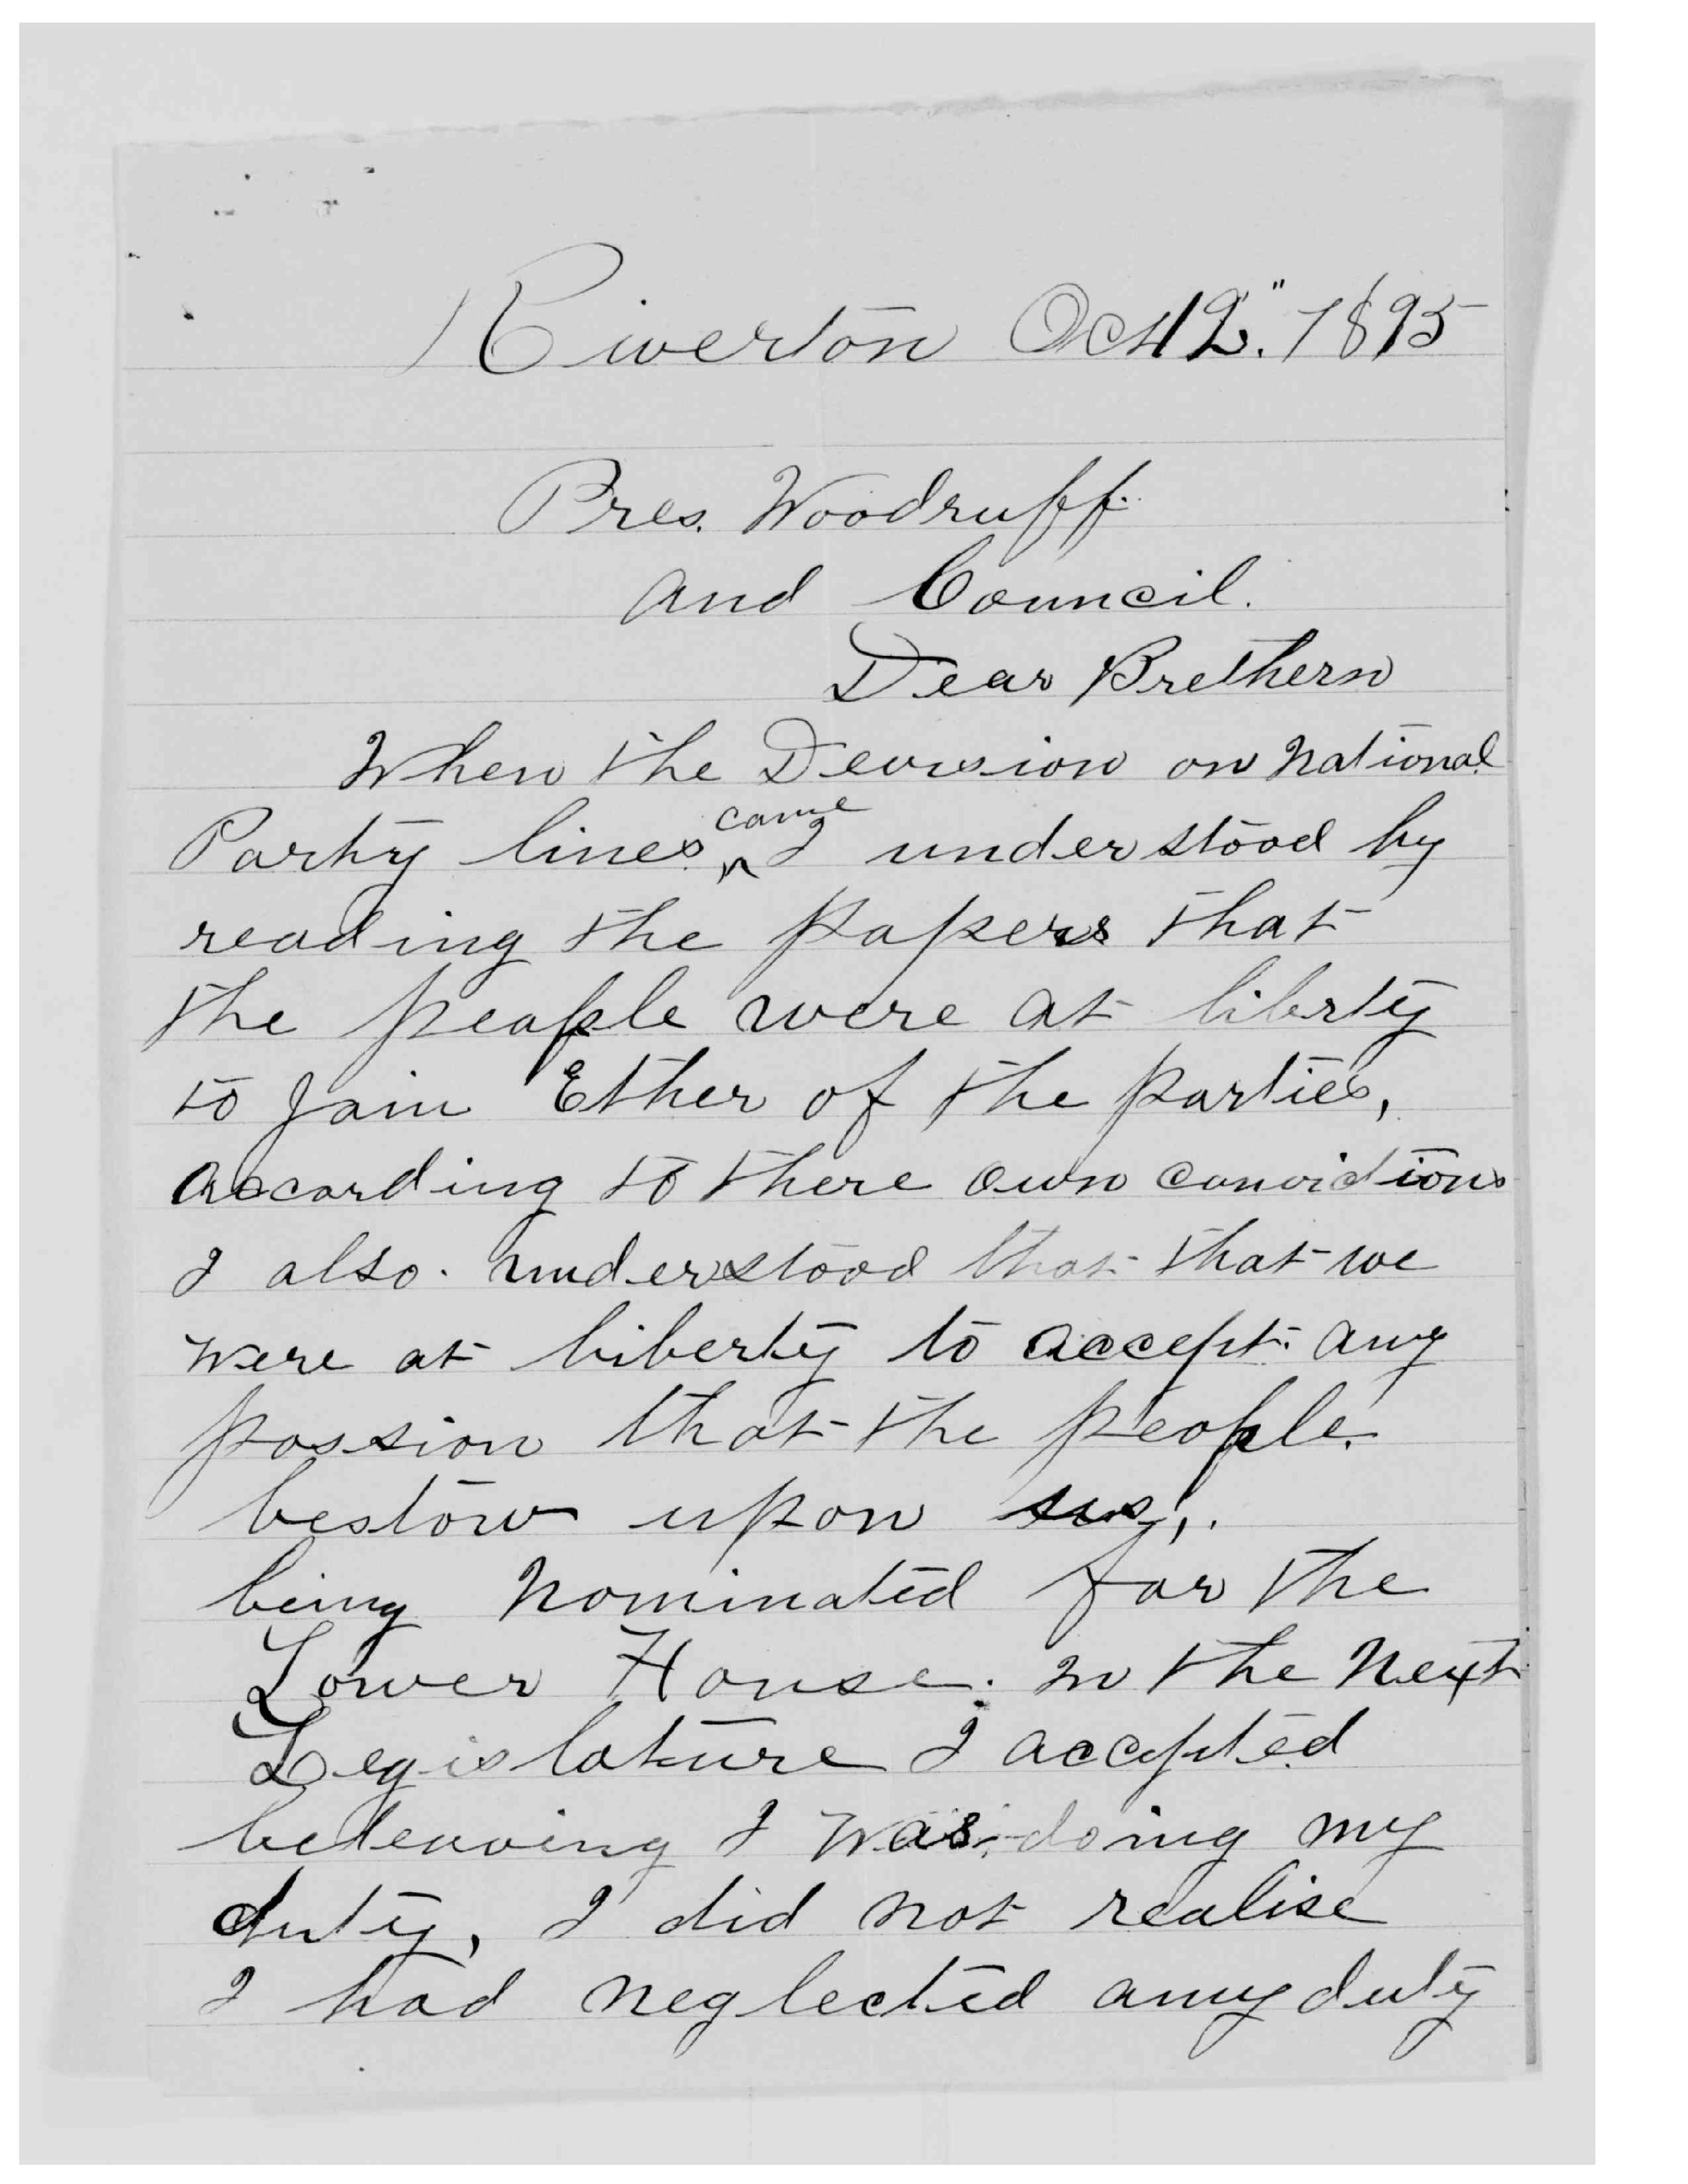 Riverton Oct 12". 1895
Pres. Woodruff.
and Council.
Dear Brethern
When the Devision on National
Party lines came I understood by
reading the papers that
the people were at liberty
to Join Ether of the parties,
according to there own convictions
I also understood that that we
were at liberty to accept any
possion that the people
bestow upon us,.
being nominated for the
Lower House. in the Next
Legislature I accepted
beleaving I was doing my
duty, I did not realise
I had neglected any duty